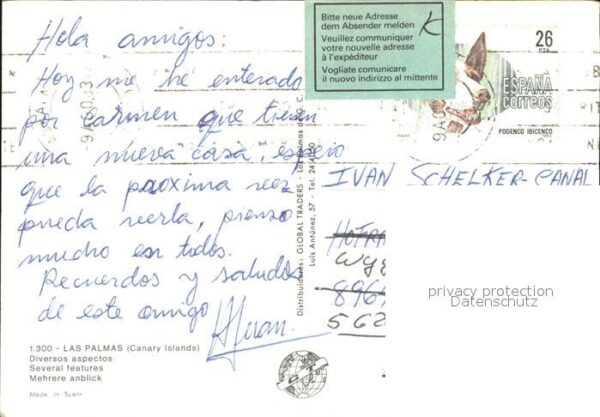 Hola amigos:
Hoy me he enterado
por Carmen que tienen
una nueva casa, espero
que la proxima vez
pueda verla, pienso
mucho en todos.
Recuerdos y saludos
de este amigo
Juan.
1.300 - LAS PALMAS (Canary Islands)
Diversos aspectos
Several features
Mehrere anblick
Made in Spain
Distribuidores: GLOBAL TRADERS - Las Palmas de G. C.
Luis Antúnez, 57 - Tel.
Bitte neue Adresse
dem Absender melden
Veuillez communiquer
votre nouvelle adresse
à l'expéditeur
Vogliate comunicare
il nuovo indirizzo al mittente
K
26
PTA
ESPAÑA
correos
PODENCO IBICENCO
IVAN SCHELKER-CANAL
896
562
privacy protection
Datenschutz